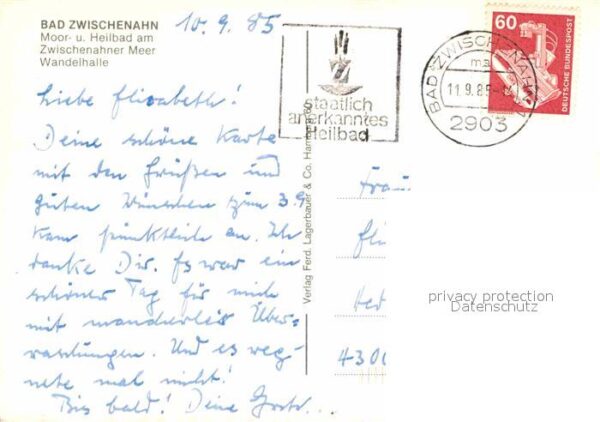 BAD ZWISCHENAHN
Moor- u. Heilbad am
Zwischenahner Meer
Wandelhalle
10.9.85
Liebe Elisabeth!
Deine schöne Karte
mit den Grüßen und
guten Wünschen zum 3.9
kam pünktlich an. Ich
danke Dir. Es war ein
schöner Tag für mich
mit mancherlei Über-
raschungen. Und es reg-
nete mal nicht!
Bis bald! Deine
Verlag Ferd. Lagerbauer & Co. Hamburg
staatlich
anerkanntes
Heilbad
BAD ZWISCHENAHN 1
ma
11.9.85
2903
60
DEUTSCHE BUNDESPOST
Frau
4300
privacy protection
Datenschutz